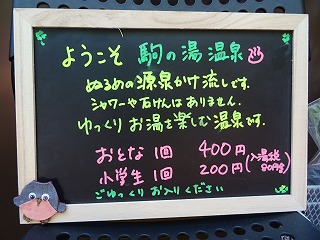 ようこそ 駒の湯温泉♨
ぬるめの源泉かけ流しです。
シャワーや石けんはありません。
ゆっくりお湯を楽しむ温泉です。
おとな 1回 400円
小学生 1回 200円 (入湯税
ごゆっくりお入りください